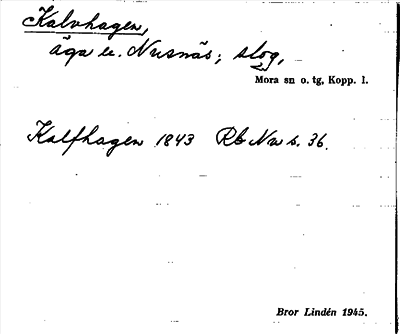 Kalvhagen,
äga u. Nusnäs; slog,
Mora sn o. tg, Kopp. l.
Kalfhagen 1843 Rb Nu s. 36.
Bror Lindén 1945.